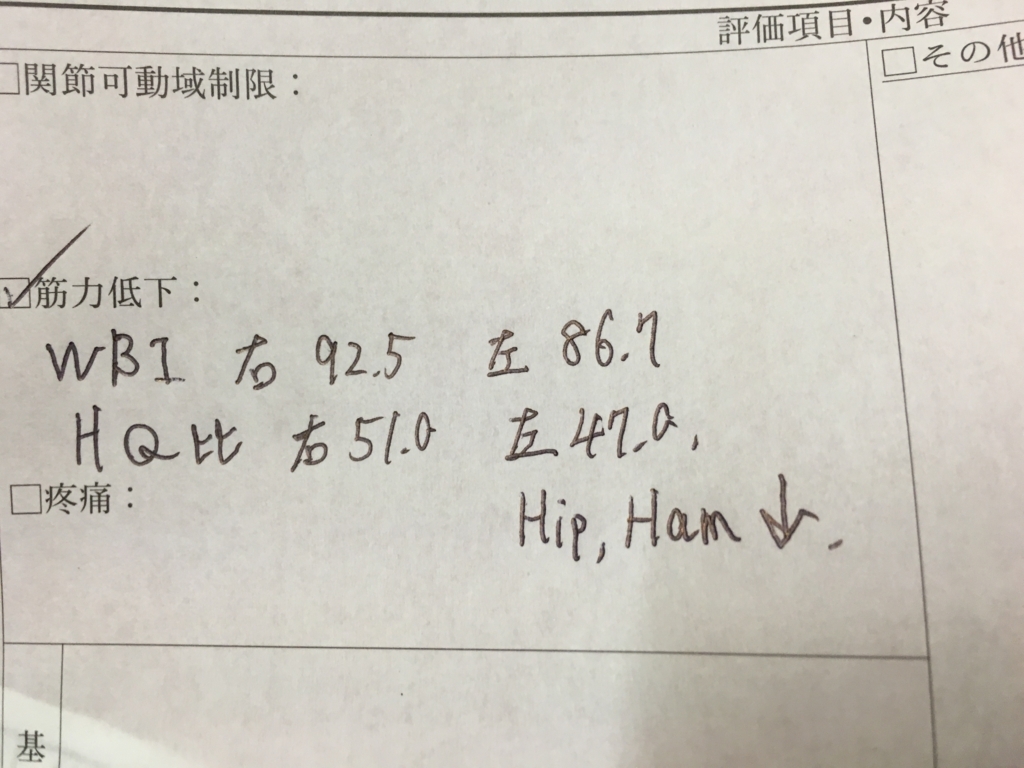 評価項目・内容
□その他
□関節可動域制限：
☑筋力低下：
WBI 右 92.5 左 86.7
HQ比 右 51.0 左 47.0.
□疼痛：
Hip, Ham ↓.
基